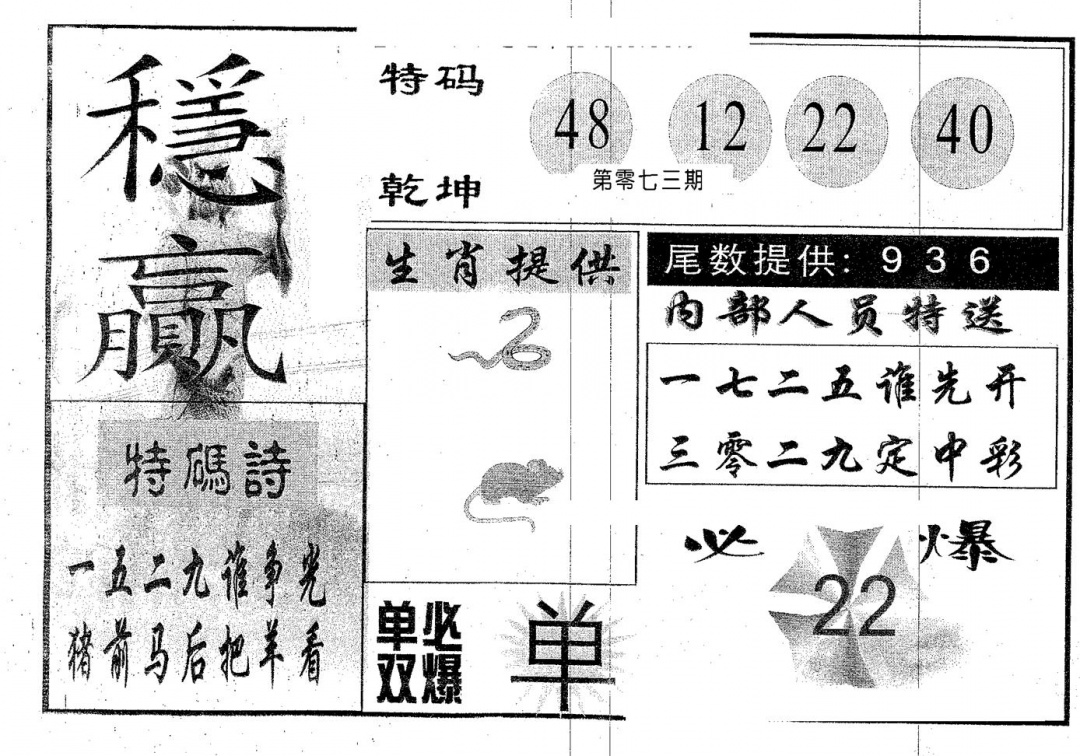 穩
贏
特码
乾坤
48 12 22 40
第零七三期
生肖提供
尾数提供: 9 3 6
内部人员特送
一七二五谁先开
三零二九定中彩
特碼詩
一五二九谁争光
猪前马后把羊看
单必
双爆
单
必 22 爆